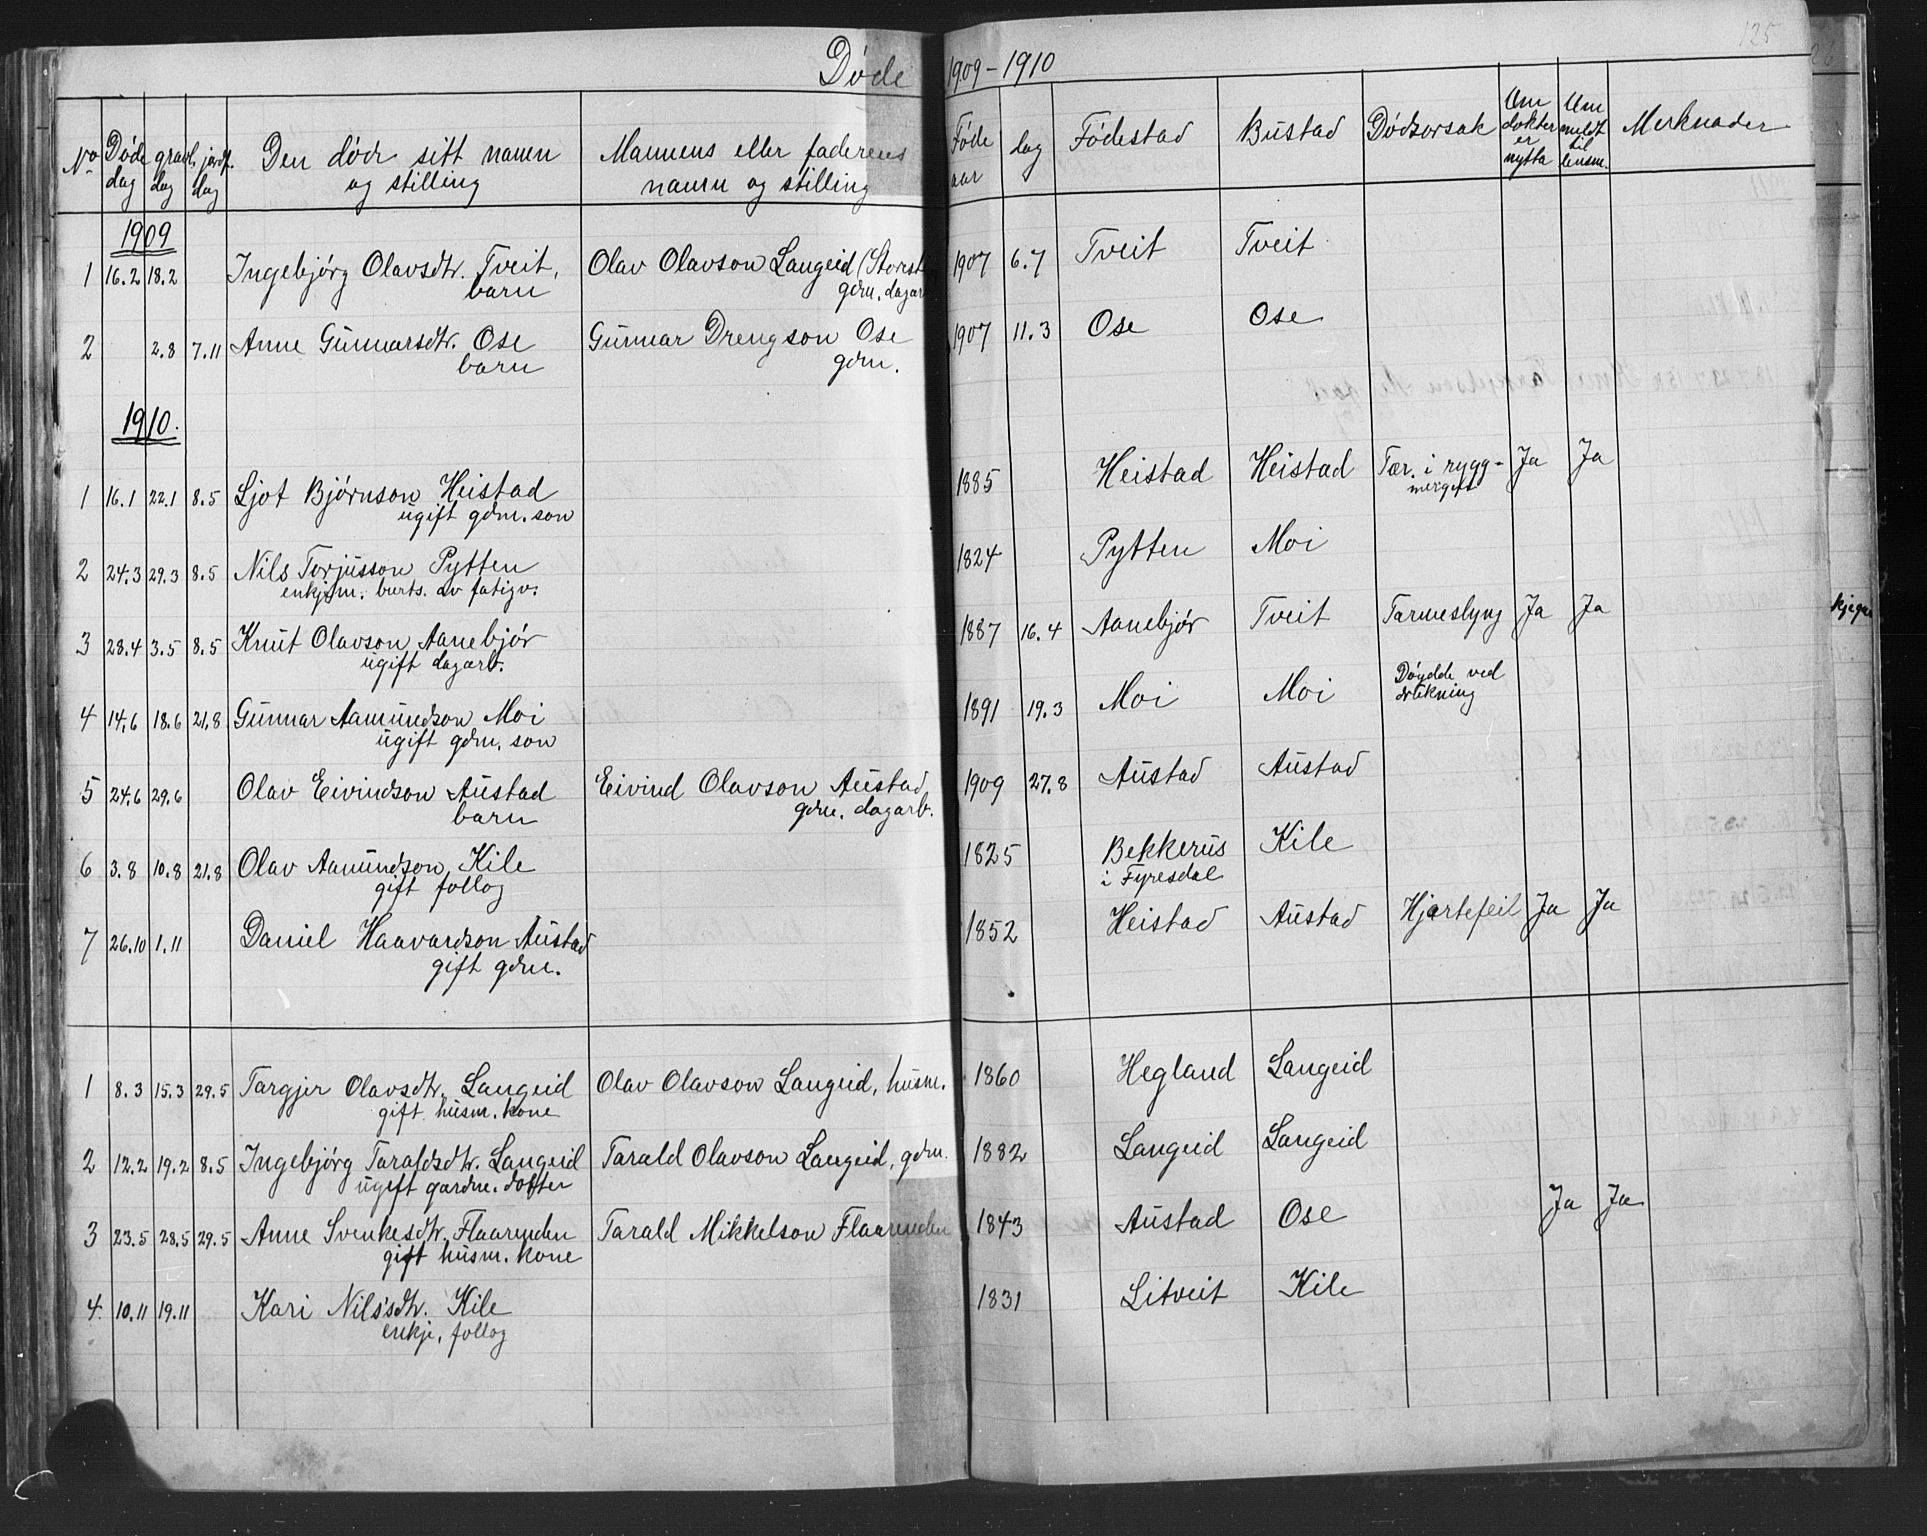 125
Døde 1909-1910
No Døde dag gravl. dag jordf. dag Den døde sitt namn og stilling Mannens eller faderens namn og stilling Føde aar dag Fødestad Bustad Dødsorsak Om dokter er nytta Um meldt til lensm. Merknader
1909
1 16.2 18.2 Ingebjørg Olavsdtr. Tveit, Olav Olavson Langeid 1907 6.7 Tveit Tveit
barn gdm. dagarb
2 2.8 7.11 Anne Gunnarsdtr. Ose Gunnar Drengson Ose 1907 11.3 Ose Ose
barn gdm.
1910.
1 16.1 22.1 8.5 Ljot Bjørnson Heistad 1885 Heistad Heistad Tær. i rygg- Ja Ja
ugift gdm. son mergen
2 24.3 29.3 8.5 Nils Torjusson Pytten 1824 Pytten Moi
enkjem. burts. av fatigv.
3 28.4 3.5 8.5 Knut Olavson Aanebjør 1887 16.4 Aanebjør Tveit Tarmeslyng Ja Ja
ugift dagarb.
4 14.6 18.6 21.8 Gunnar Aamundson Moi 1891 19.3 Moi Moi Døydde ved
ugift gdm. son drukning
5 24.6 29.6 Olav Eivindson Austad Eivind Olavson Austad 1909 27.8 Austad Austad
barn gdm. dagarb.
6 3.8 10.8 21.8 Olav Aamundson Kile 1825 Bekkerus Kile
gift follog i Fyresdal
7 26.10 1.11 Daniel Haavardson Austad 1852 Heistad Austad Hjartefeil Ja Ja
gift gdm.
1 8.3 15.3 29.5 Targjer Olavsdtr. Langeid Olav Olavson Langeid, husm. 1860 Hegland Langeid
gift husm. kone
2 12.2 19.2 8.5 Ingebjørg Taraldsdtr. Langeid Tarald Olavson Langeid, gdm. 1882 Langeid Langeid
ugift gardm. dotter
3 23.5 28.5 29.5 Anne Svenkesdtr. Flaarenden Tarald Mikkelson Flaarenden 1843 Austad Ose Ja Ja
gift husm. kone
4 10.11 19.11 Kari Nilsdtr. Kile 1831 Litveit Kile
enkje, follog